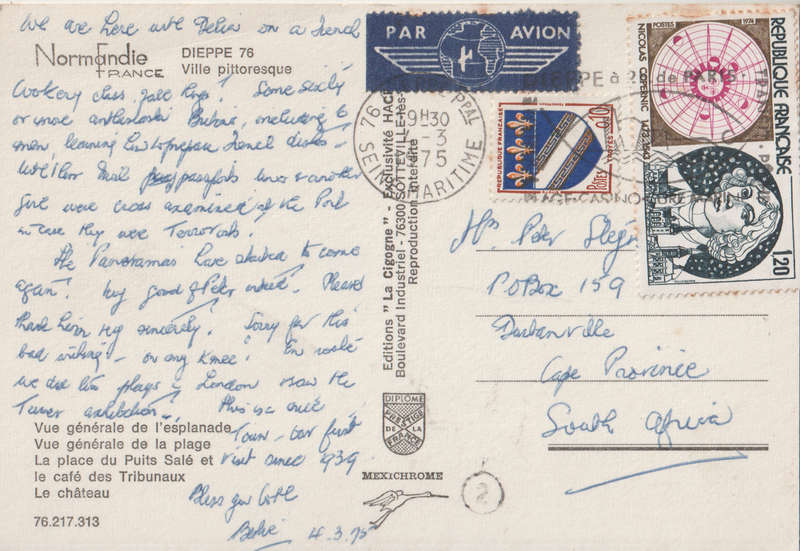 We are here with Delia on a French
Normandie
FRANCE
DIEPPE 76
Ville pittoresque
Cookery class. Some sixty
or more enthusiastic including 6
men learning how to prepare French dishes -
passports and another
girl were cross examined at the Port
in case they were Terrorists.
The Panoramas have started to come
again. Very good of Peter indeed. Please
thank him very sincerely. Sorry for this
bad writing - on my knee! En route
we did two plays in London & saw the
Turner exhibition. This is a nice
Town - our first
visit since 1939
Bless you both
4.3.75
Vue générale de l'esplanade
Vue générale de la plage
La place du Puits Salé et
le café des Tribunaux
Le château
76.217.313
Editions "La Cigogne" - Exclusivité HAC
Boulevard Industriel - 76300 SOTTEVILLE-lès-
Reproduction Interdite
DIPLOME
PRESTIGE
DE LA
FRANCE
MEXICHROME
2
PAR AVION
76
9H30
-3
1975
SEINE MARITIME
DIEPPE à 2H de PARIS
PLAGE-CASINO
REPUBLIQUE FRANÇAISE
0,10
POSTES
POSTES 1974
NICOLAS COPERNIC 1473-1543
REPUBLIQUE FRANÇAISE
1,20
Mrs Peter
P.O Box 159
Durbanville
Cape Province
South Africa